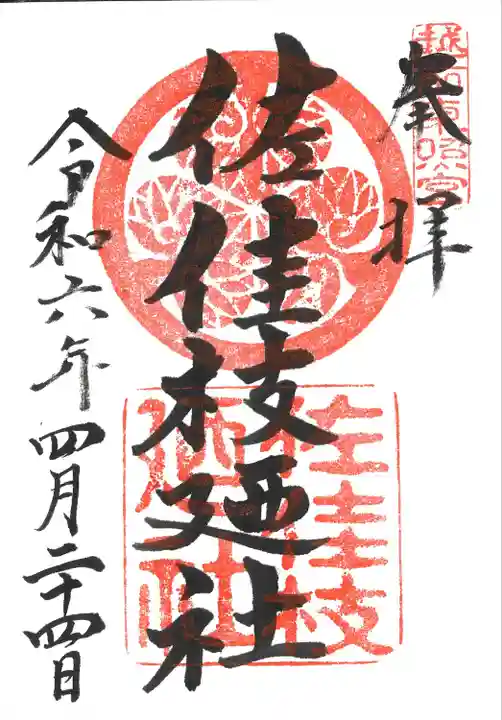 奉拝
越前東照宮
佐佳枝廼社
佐佳枝廼社
令和六年四月二十四日